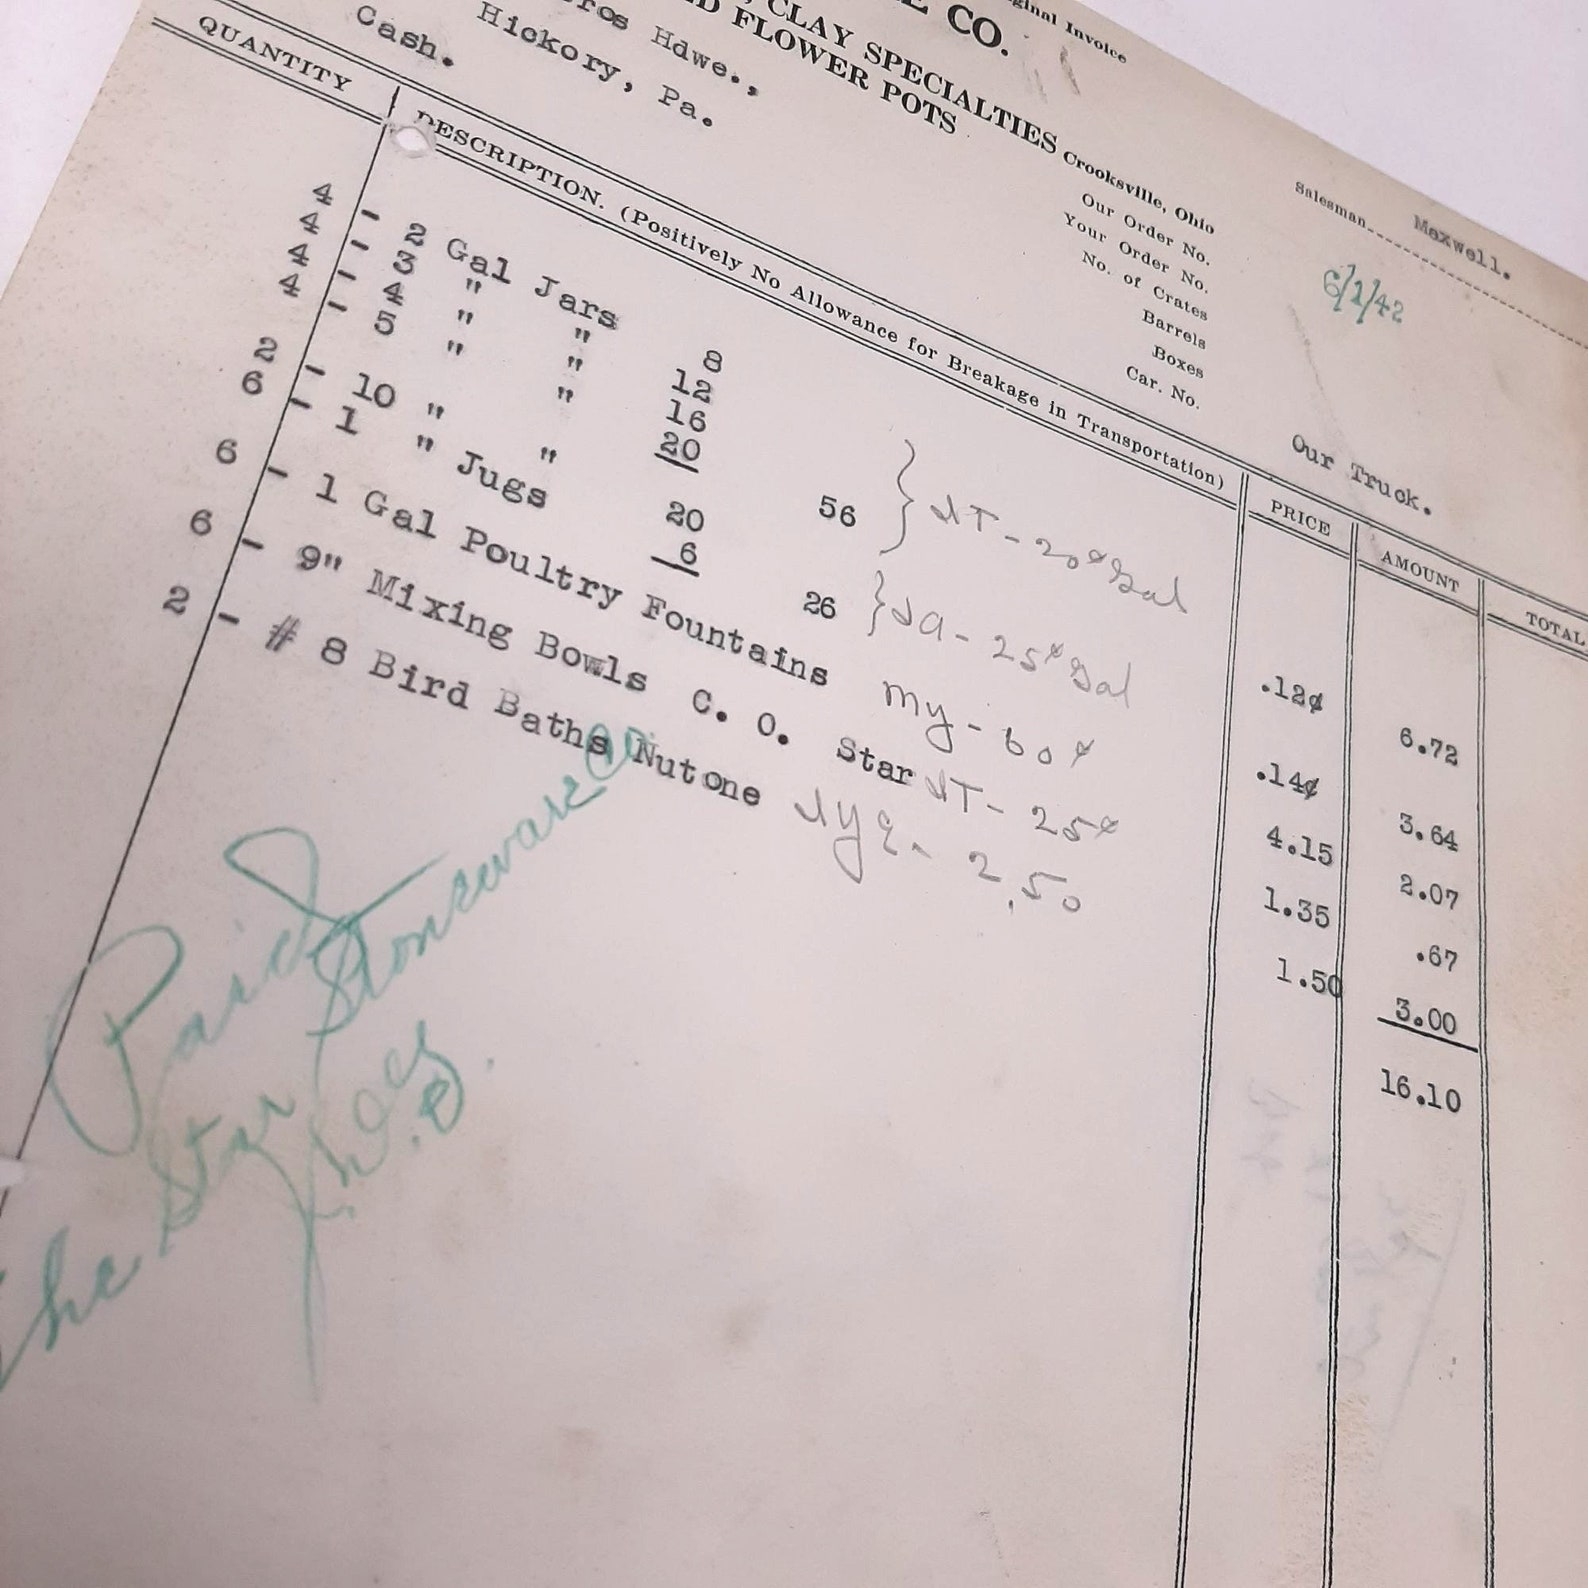 Original Invoice
CO.
CLAY SPECIALTIES
FLOWER POTS
Crooksville, Ohio
Hdwe.,
Hickory, Pa.
Cash.
Salesman Maxwell.
Our Order No.
Your Order No.
No. of Crates
Barrels
Boxes
Car. No.
6/1/42
Our Truck.
QUANTITY DESCRIPTION. (Positively No Allowance for Breakage in Transportation) PRICE AMOUNT TOTAL
4 - 2 Gal Jars 8
4 - 3 " " 12
4 - 4 " " 16
4 - 5 " " 20 56 20¢ Gal .12¢ 6.72
2 - 10 " " 20
6 - 1 " Jugs 6 26 25¢ Gal .14¢ 3.64
6 - 1 Gal Poultry Fountains my - 60¢ 4.15 2.07
6 - 9" Mixing Bowls C. O. Star 25¢ 1.35 .67
2 - # 8 Bird Baths Nutone 2.50 1.50 3.00
16.10
Paid
The Star Stoneware Co